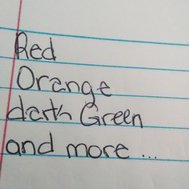 Red
Orange
darth Green
and more ...